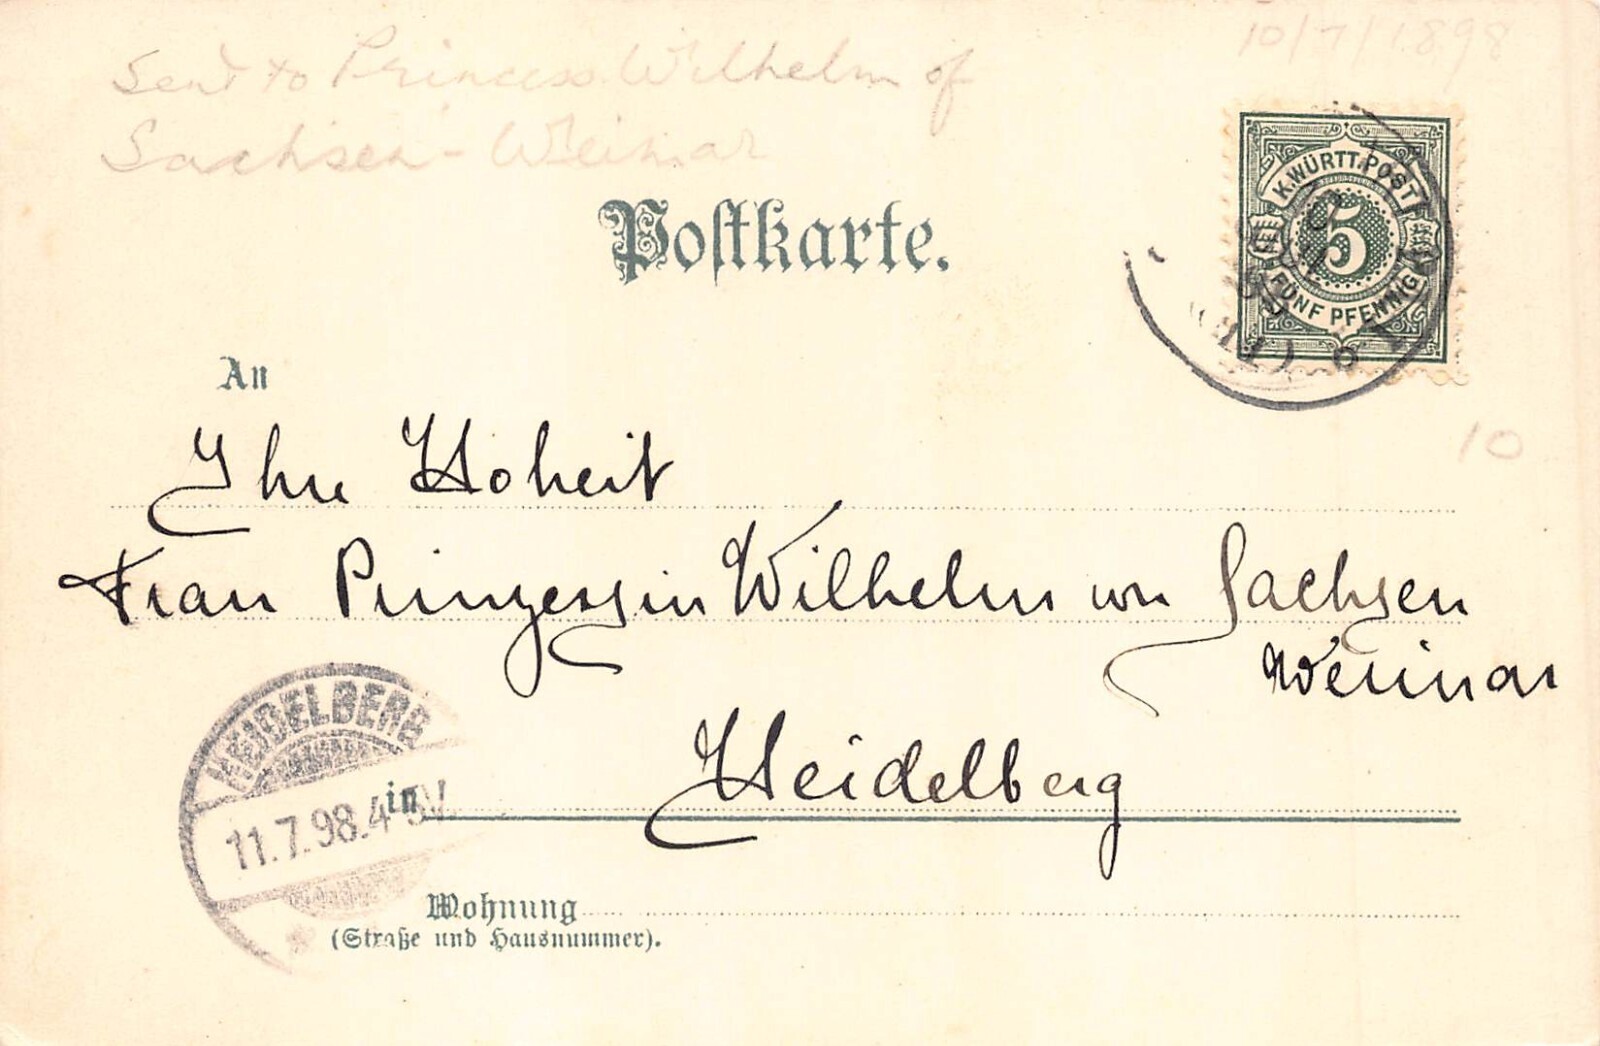 Sent to Princess Wilhelm of
Sachsen-Weimar
10/7/1898
Postkarte.
K.WÜRTT.POST
5
FÜNF PFENNIG
10
An
Ihre Hoheit
Frau Prinzessin Wilhelm von Sachsen
Weimar
Heidelberg
in
HEIDELBERG
11.7.98.4-5V.
Wohnung
(Straße und Hausnummer).